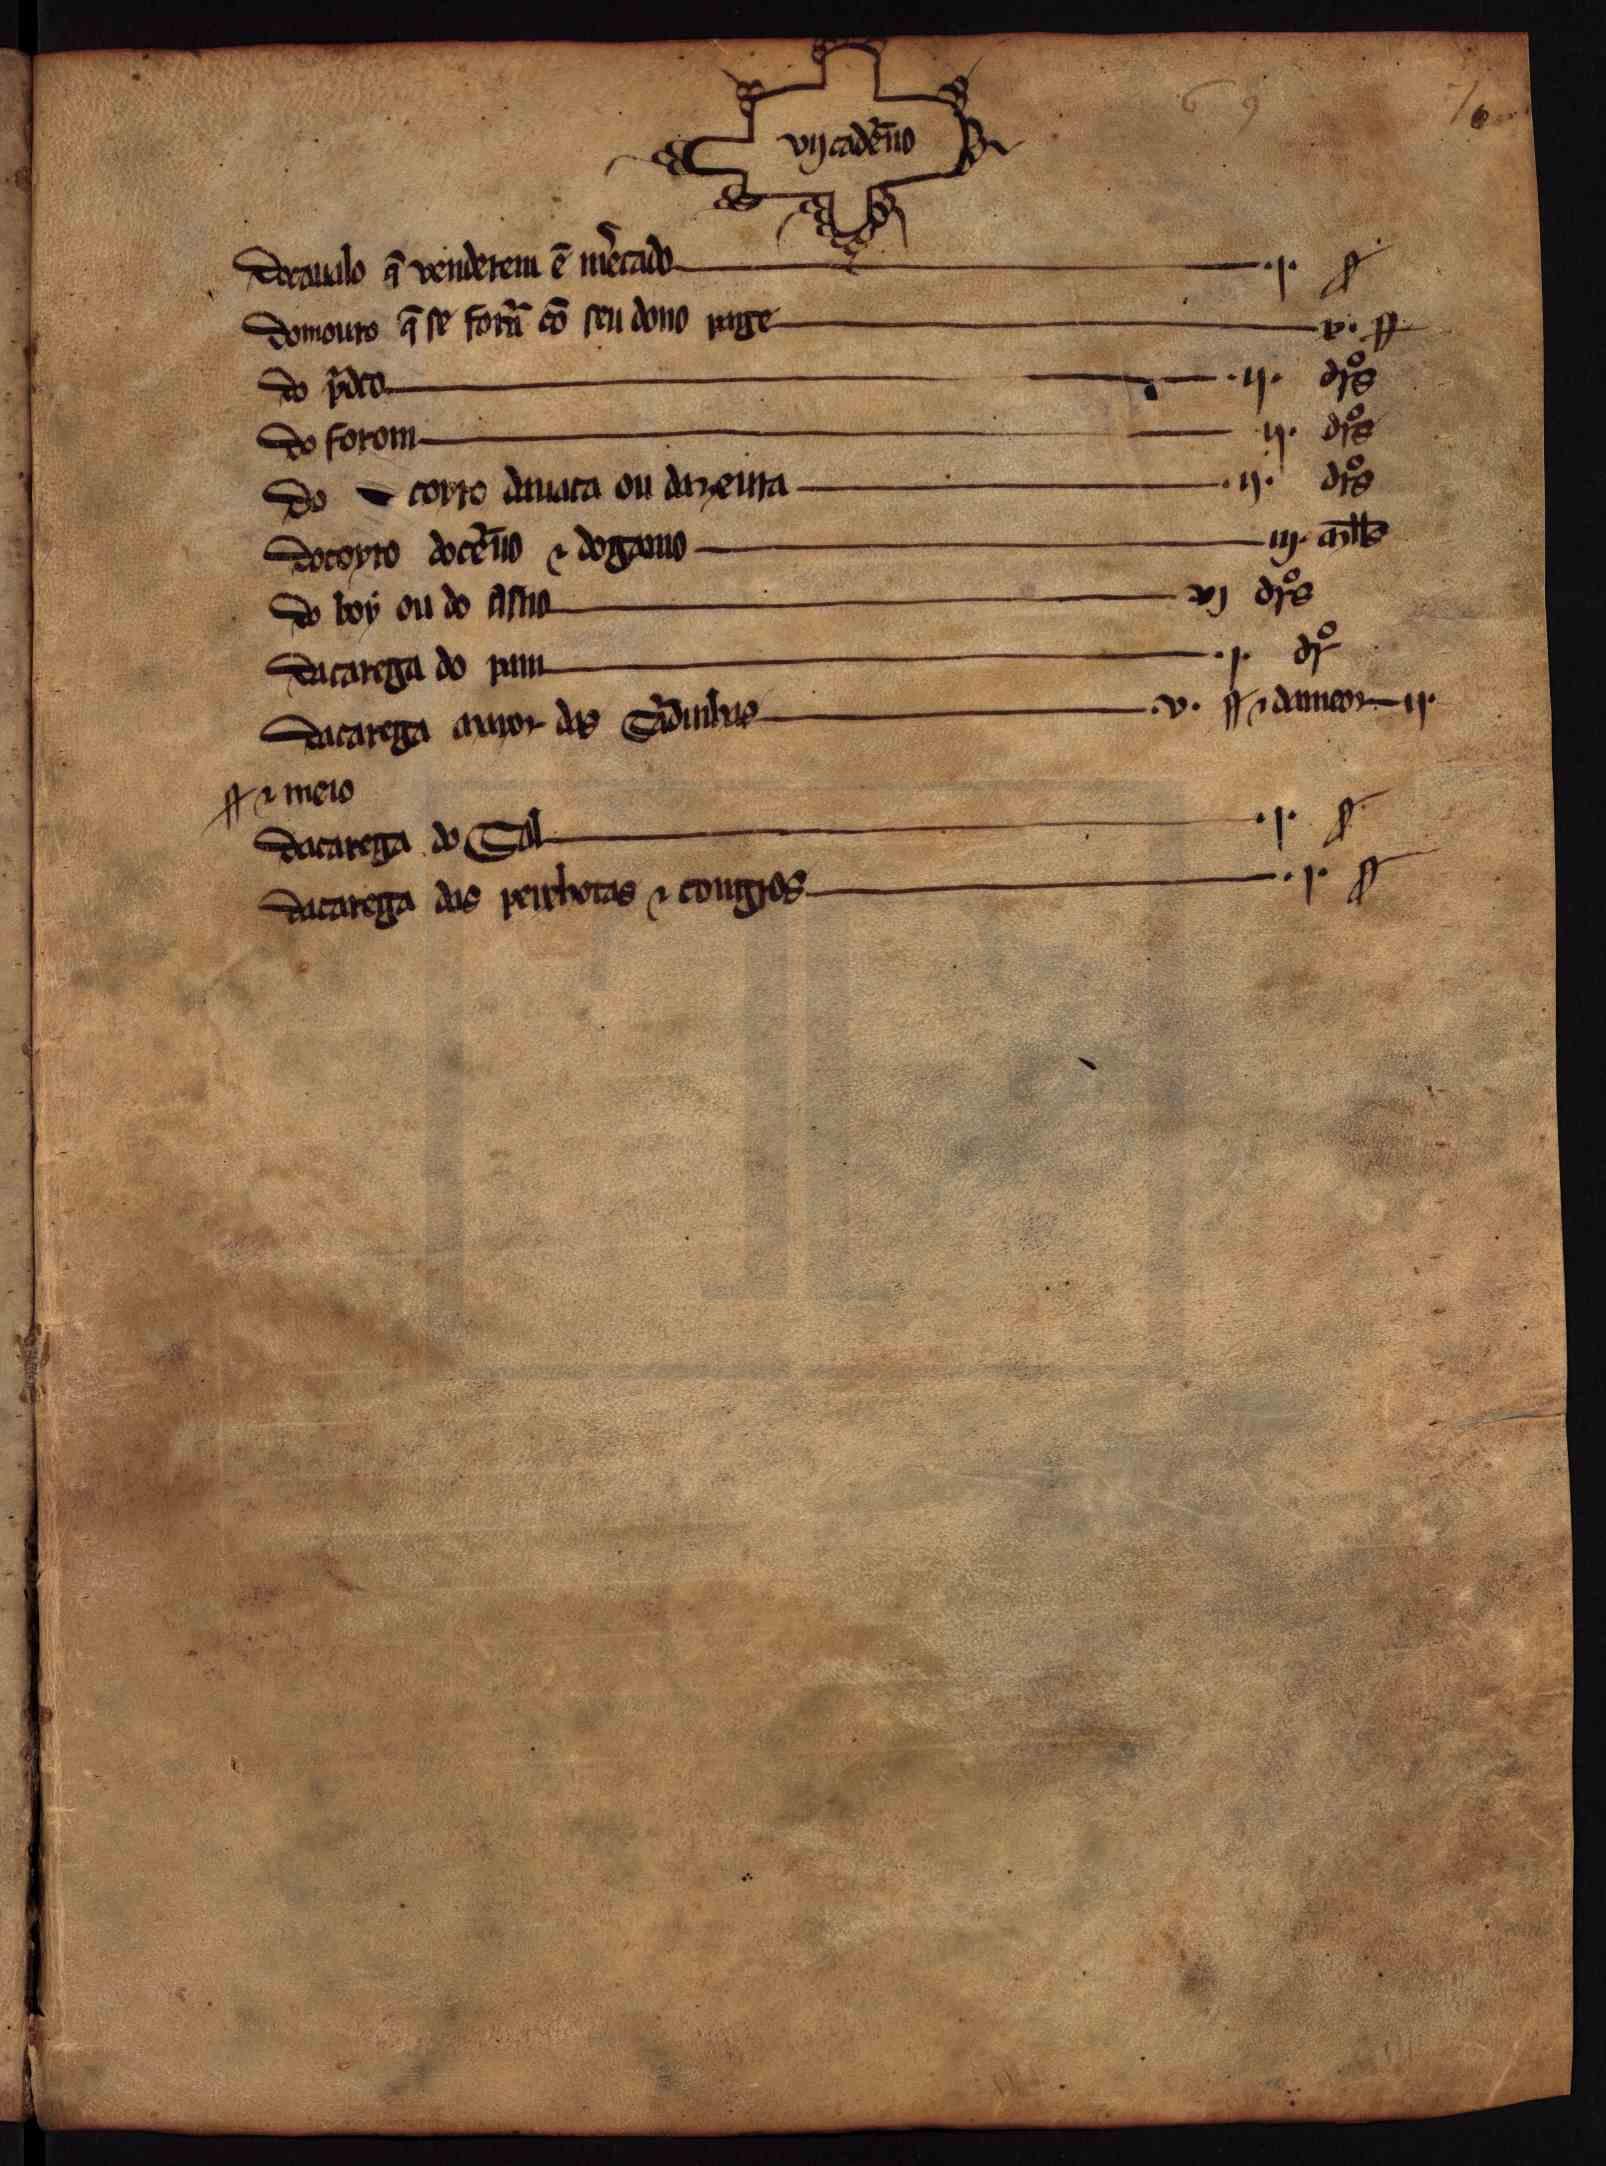 69
vij cadẽno
Docaualo q̃ venderem ẽ m̃ercado .i. ss
Domouro q̃ se forrã cõ seu dono page v. ss
do p̃dco .ij. drºs
do forom ij. drºs
Do coyro dauaca ou dazeura .ij. drºs
Docoyro docẽruo ⁊ dogamo iij. mlls
do boy ou do Asno vj drºs
Dacarega do pam .i. drº
Dacarega maior das Sardinhas .v. ss ⁊ dameor ij.
ss ⁊ meio
Dacarega do Sal .i. ss
Dacarega das peixhotas ⁊ congros .i. ss